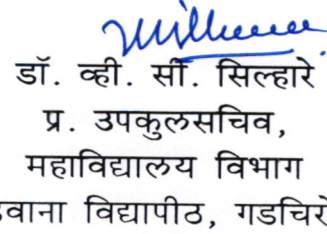 डॉ. व्ही. सी. सिल्हारे
प्र. उपकुलसचिव,
महाविद्यालय विभाग
विद्यापीठ,